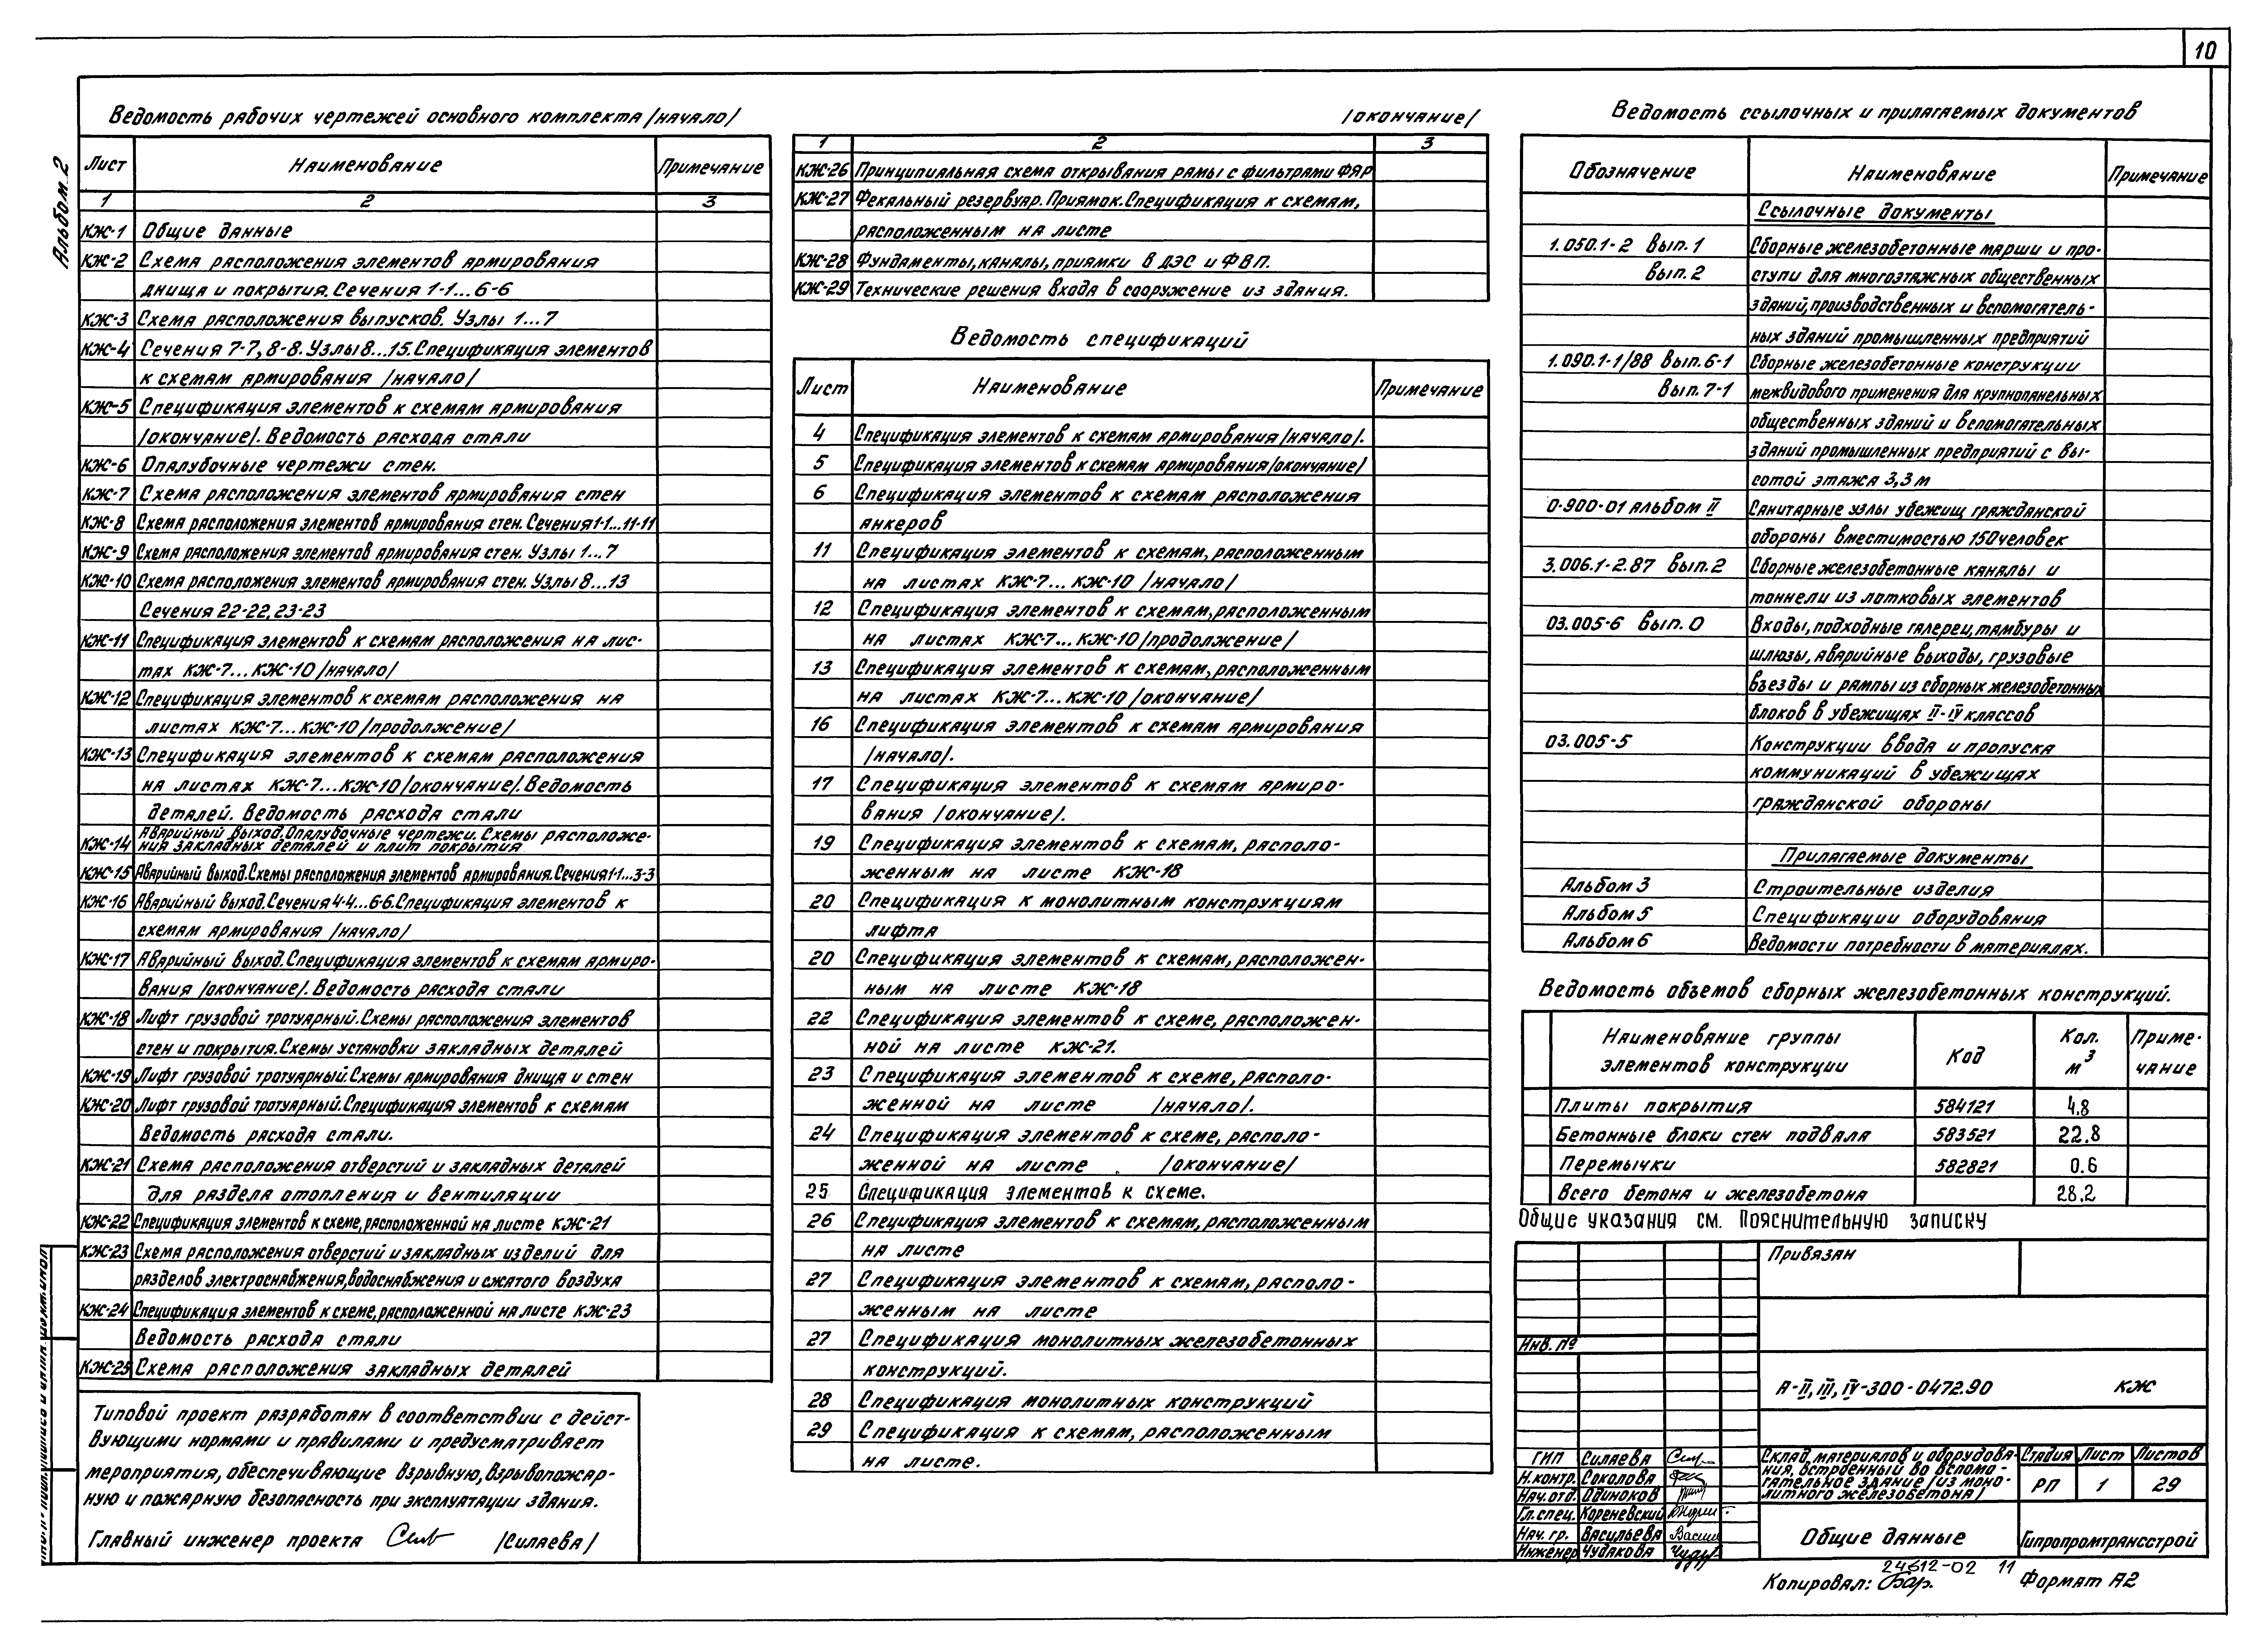 10
Альбом 2
Ведомость рабочих чертежей основного комплекта /начало/
Лист Наименование Примечание
1 2 3
КЖ-1 Общие данные
КЖ-2 Схема расположения элементов армирования
днища и покрытия. Сечения 1-1...6-6
КЖ-3 Схема расположения выпусков. Узлы 1...7
КЖ-4 Сечения 7-7, 8-8. Узлы 8...15. Спецификация элементов
к схемам армирования /начало/
КЖ-5 Спецификация элементов к схемам армирования
/окончание/. Ведомость расхода стали
КЖ-6 Опалубочные чертежи стен.
КЖ-7 Схема расположения элементов армирования стен
КЖ-8 Схема расположения элементов армирования стен. Сечения 1-1...11-11
КЖ-9 Схема расположения элементов армирования стен. Узлы 1...7
КЖ-10 Схема расположения элементов армирования стен. Узлы 8...13
Сечения 22-22, 23-23
КЖ-11 Спецификация элементов к схемам расположения на лис-
тах КЖ-7...КЖ-10 /начало/
КЖ-12 Спецификация элементов к схемам расположения на
листах КЖ-7...КЖ-10 /продолжение/
КЖ-13 Спецификация элементов к схемам расположения
на листах КЖ-7...КЖ-10 /окончание/. Ведомость
деталей. Ведомость расхода стали
КЖ-14 Аварийный выход. Опалубочные чертежи. Схемы расположе-
ния закладных деталей и плит покрытия
КЖ-15 Аварийный выход. Схемы расположения элементов армирования. Сечения 1-1...3-3
КЖ-16 Аварийный выход. Сечения 4-4...6-6. Спецификация элементов к
схемам армирования /начало/
КЖ-17 Аварийный выход. Спецификация элементов к схемам армиро-
вания /окончание/. Ведомость расхода стали
КЖ-18 Лифт грузовой тротуарный. Схемы расположения элементов
стен и покрытия. Схемы установки закладных деталей
КЖ-19 Лифт грузовой тротуарный. Схемы армирования днища и стен
КЖ-20 Лифт грузовой тротуарный. Спецификация элементов к схемам
Ведомость расхода стали.
КЖ-21 Схема расположения отверстий и закладных деталей
для раздела отопления и вентиляции
КЖ-22 Спецификация элементов к схеме, расположенной на листе КЖ-21
КЖ-23 Схема расположения отверстий и закладных изделий для
разделов электроснабжения, водоснабжения и сжатого воздуха
КЖ-24 Спецификация элементов к схеме, расположенной на листе КЖ-23
Ведомость расхода стали
КЖ-25 Схема расположения закладных деталей
Типовой проект разработан в соответствии с дейст-
вующими нормами и правилами и предусматривает
мероприятия, обеспечивающие взрывную, взрывопожар-
ную и пожарную безопасность при эксплуатации здания.
Главный инженер проекта /Силаева/
/окончание/
1 2 3
КЖ-26 Принципиальная схема открывания рамы с фильтрами ФЯР
КЖ-27 Фекальный резервуар. Приямок. Спецификация к схемам,
расположенным на листе
КЖ-28 Фундаменты, каналы, приямки в ДЭС и ФВП.
КЖ-29 Технические решения входа в сооружение из здания.
Ведомость спецификаций
Лист Наименование Примечание
4 Спецификация элементов к схемам армирования /начало/.
5 Спецификация элементов к схемам армирования /окончание/
6 Спецификация элементов к схемам расположения
анкеров
11 Спецификация элементов к схемам, расположенным
на листах КЖ-7...КЖ-10 /начало/
12 Спецификация элементов к схемам, расположенным
на листах КЖ-7...КЖ-10 /продолжение/
13 Спецификация элементов к схемам, расположенным
на листах КЖ-7...КЖ-10 /окончание/
16 Спецификация элементов к схемам армирования
/начало/.
17 Спецификация элементов к схемам армиро-
вания /окончание/.
19 Спецификация элементов к схемам, располо-
женным на листе КЖ-18
20 Спецификация к монолитным конструкциям
лифта
20 Спецификация элементов к схемам, расположен-
ным на листе КЖ-18
22 Спецификация элементов к схеме, расположен-
ной на листе КЖ-21.
23 Спецификация элементов к схеме, располо-
женной на листе /начало/.
24 Спецификация элементов к схеме, располо-
женной на листе /окончание/
25 Спецификация элементов к схеме.
26 Спецификация элементов к схемам, расположенным
на листе
27 Спецификация элементов к схемам, располо-
женным на листе
27 Спецификация монолитных железобетонных
конструкций.
28 Спецификация монолитных конструкций
29 Спецификация к схемам, расположенным
на листе.
Ведомость ссылочных и прилагаемых документов
Обозначение Наименование Примечание
Ссылочные документы
1.050.1-2 вып.1 Сборные железобетонные марши и про-
вып.2 ступи для многоэтажных общественных
зданий, производственных и вспомогатель-
ных зданий промышленных предприятий
1.090.1-1/88 вып.6-1 Сборные железобетонные конструкции
вып.7-1 межвидового применения для крупнопанельных
общественных зданий и вспомогательных
зданий промышленных предприятий с вы-
сотой этажа 3,3 м
0-900-01 альбом II Санитарные узлы убежищ гражданской
обороны вместимостью 150 человек
3.006.1-2.87 вып.2 Сборные железобетонные каналы и
тоннели из лотковых элементов
03.005-6 вып.0 Входы, подходные галереи, тамбуры и
шлюзы, аварийные выходы, грузовые
въезды и рампы из сборных железобетонных
блоков в убежищах II-IV классов
03.005-5 Конструкции ввода и пропуска
коммуникаций в убежищах
гражданской обороны
Прилагаемые документы
Альбом 3 Строительные изделия
Альбом 5 Спецификации оборудования
Альбом 6 Ведомости потребности в материалах.
Ведомость объемов сборных железобетонных конструкций.
Наименование группы элементов конструкции Код Кол. м3 Приме-чание
Плиты покрытия 584121 4.8
Бетонные блоки стен подвала 583521 22.8
Перемычки 582821 0.6
Всего бетона и железобетона 28.2
Общие указания см. Пояснительную записку
Привязан
Инв. №
А-II, III, IV-300-0472.90 КЖ
ГИП Силаева
Н.контр. Соколова
Нач.отд. Одиноков
Гл.спец. Кореневский
Нач. гр. Васильева
Инженер Чудакова
Склад материалов и оборудова-
ния, встроенный во вспомо-
гательное здание /из моно-
литного железобетона/
Стадия Лист Листов
РП 1 29
Общие данные
Гипропромтрансстрой
24612-02 11
Копировал: Формат А2